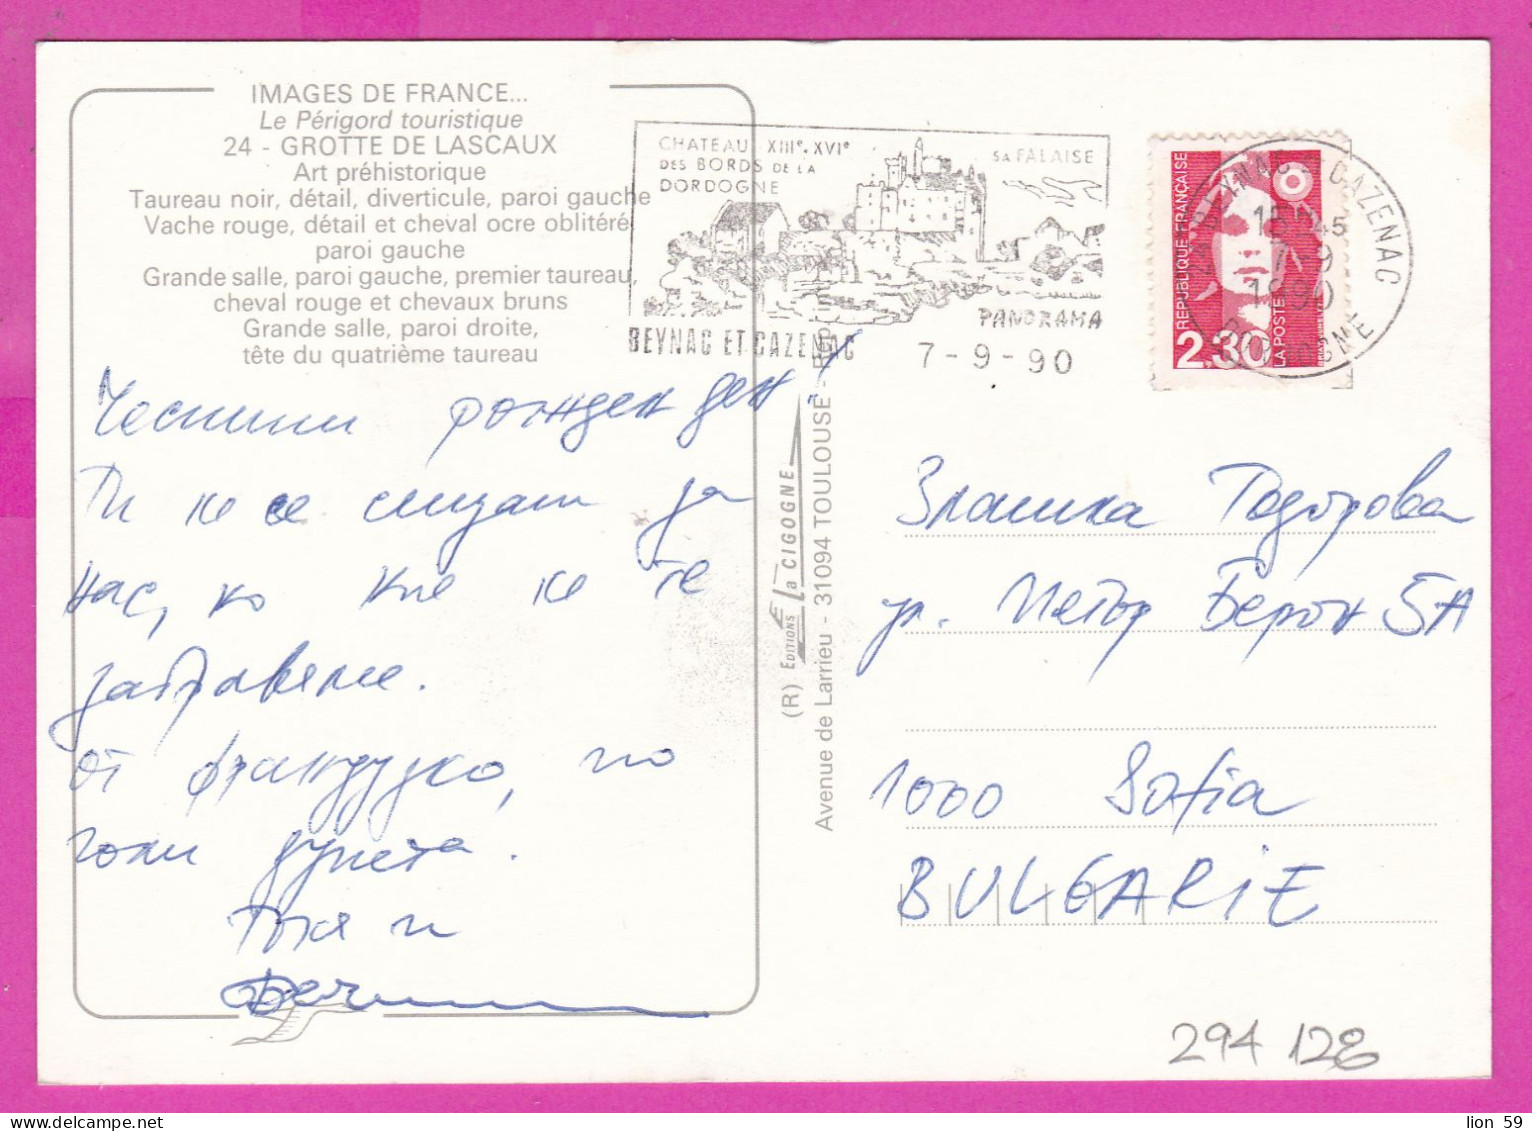 IMAGES DE FRANCE...
Le Périgord touristique
24 - GROTTE DE LASCAUX
Art préhistorique
Taureau noir, détail, diverticule, paroi gauche
Vache rouge, détail et cheval ocre oblitéré,
paroi gauche
Grande salle, paroi gauche, premier taureau,
cheval rouge et chevaux bruns
Grande salle, paroi droite,
tête du quatrième taureau
CHATEAU XIIIe. XVIe
DES BORDS DE LA
DORDOGNE
SA FALAISE
PANORAMA
BEYNAC ET CAZENAC
7-9-90
REPUBLIQUE FRANÇAISE
2,30
LA POSTE
CAZENAC
12 45
7-9
1990
Честит рожден ден!
Ти не се сещаш за
нас, но ние не те
забравяме.
от французко, по
голи дупета.
Таня и
(R) EDITIONS La CIGOGNE
Avenue de Larrieu - 31094 TOULOUSE
Златка Тодорова
ул. Петър Берон 5А
1000 Sofia
BULGARIE
294 128
lion 59